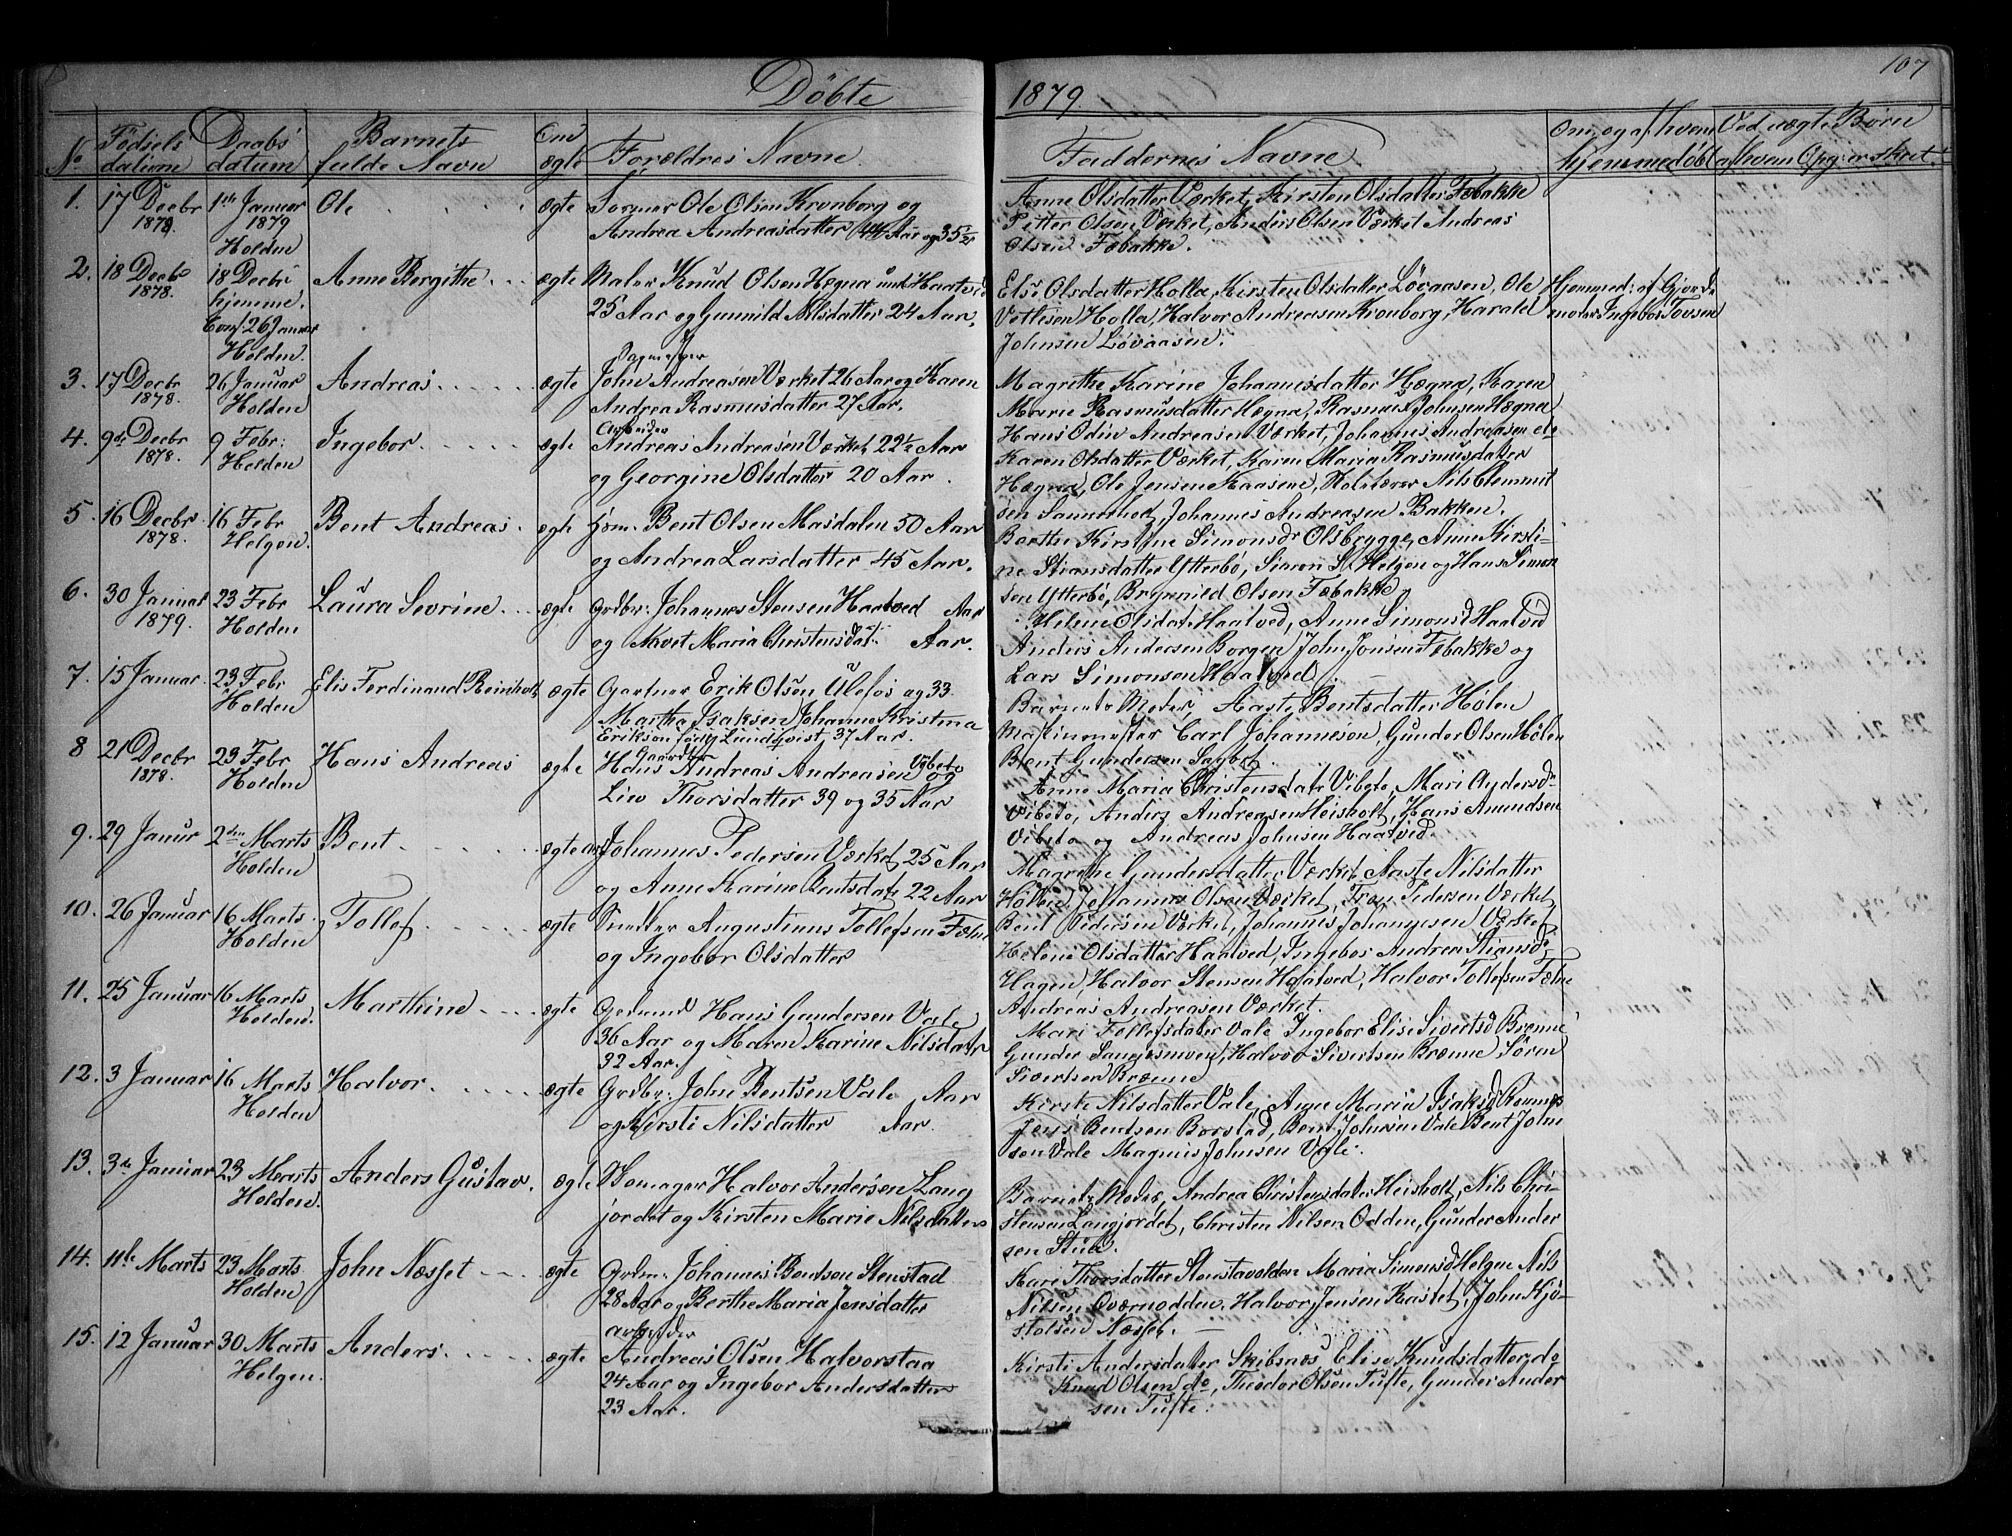 107
Döbte 1879.
No Födsels datum Daabs datum Barnets fulde Navn Om ægte Forældres Navne. Faddernes Navne Om og af hvem hjemmedöbt Ved uægte Börn
1. 17 Decbr 1879. 1ste Januar 1879 Holden Ole ægte
Ole Olsen Kronborg og
Andrea Andreasdatter 44 Aar og 35 1/2
Anne Olsdatter Værket, Kirsten Olsdatter Fæbakke
Petter Olsen Værket, Anders Olsen Værket Andreas
Olsen Fæbakke.
2. 18 Decbr 1878. 18 Decbr hjemme. Conf. 26 Januar Holden. Anne Bergithe ægte
Maler Knud Olsen Hægna
25 Aar og Gunnild Nilsdatter 24 Aar.
Else Olsdatter Holla, Kirsten Olsdatter Løvaasen, Ole
Vetlesen Holla, Halvor Andreasen Kronborg, Harald
Johnsen Løvaasen.
Hjemmed: af Gjord-
moder Ingebor Tovsen
3. 17 Decbr 1878. 26 Januar Holden Andreas ægte
John Andreasen Værket 26 Aar og Karen
Andrea Rasmusdatter 27 Aar.
Magrethe Karine Johannesdatter Hægna, Karen
Marie Rasmusdatter Hægna, Rasmus Johnsen Hægna
Hans Odin Andreasen Værket, Johannes Andreasen do
4. 9de Decbr 1878. 9 Febr: Holden Ingebor ægte
Arbeider
Andreas Andreasen Værket, 22 1/2 Aar
og Georgine Olsdatter 20 Aar.
Karen Olsdatter Værket, Karen Maria Rasmusdatter
Hægna, Ole Jensen Kaasene, Nils Clemmit
sen Johannes Andreasen Bakken.
5. 16 Decbr 1878. 16 Febr Helgen. Bent Andreas ægte
Bent Olsen Masdalen 50 Aar
og Andrea Larsdatter 45 Aar.
Berthe Kirstine Simonsdr Olsbrygge, Anne Kirsti-
ne Stiansdatter Ytterbø, Simon S. Helgen og Hans Simon
sen Ytterbø, Brynnild Olsen Fæbakke
6. 30 Januar 1879. 23 Febr Holden Laura Sevrine ægte
Grdbr: Johannes Stensen Haatved Aar
og Maria Christensdat. Aar.
Helene Olsdat. Haatved, Anne Simonsd Haatved
Anders Andersen Borgen John Jonsen Fæbakke og
Lars Simonsen Haatved.
7. 15 Januar. 23 Febr Holden Elis Ferdinand Reinholt ægte
Gartner Erik Olsen Ulefos og 33.
Martha Isaksen Johanne Kristina
Erikson født Lundqvist, 37 Aar.
Barnets Moder, Aaste Bentsdatter Hølen
Maskinmester Carl Johannesøn, Gunder Olsen Hølen
Bent Gundersen
8 21 Decbr 1878. 23 Febr Holden Hans Andreas ægte
Hans Andreas Andreasen Vibeto og
Liv Thorsdatter 39 og 35 Aar
Anne Maria Christensdatr Vibeto, Mari Andersdr
Vibeto, Anders Andreasen Heisholt, Hans Amundsen
Vibeto og Andreas Johnsen Haatved
9. 29 Janur 2den Marts Holden Bent ægte
Johannes Pedersen Værket 25 Aar
og Anne Karine Bentsdatr 22 Aar
Magrethe Gundersdatter Værket Aaste Nilsdatter
Johannes Olsen Værket, Pedersen Værket,
Bent Pedersen Værket, Johannes Johannesen Værket
10. 26 Januar 16 Marts Holden Tollef ægte
Snekker Augustinus Tollefsen Fæhn
og Ingebor Olsdatter
Helene Olsdatter Haatved, Ingebor Andrea Stiansdr
Hagen, Halvor Stensen Haatved, Halvor Tollefsen Fæhn
Andreas Andreasen Værket.
11. 25 Januar 16 Marts Holden. Marthine ægte
Hans Gundersen Vale
36 Aar og Maren Karine Nilsdatr
32 Aar.
Mari Tollefsdatter Vale Ingebor Elise Sivertsd Brenne
Gunder Halvor Sivertsen Brenne Sören
Sivertsen Brenne
12. 3 Januar 16 Marts Holden Halvor ægte
Grdbr: John Bentsen Vale Aar
og Kirsti Nilsdatter Aar.
Kirste Nilsdatter Vale, Anne Maria Isaksd
Jens Bentsen Borstad, Bent Johnsen Vale Bent John
sen Vale Magnus Johnsen Vale.
13. 3de Januar 23 Marts Holden. Anders Gustav. ægte
Halvor Andersen Lang
jordet og Kirsten Marie Nilsdatter
Barnets Moder, Andrea Christensdatter Heisholt, Nils Chri-
stensen Langjordet, Christen Nilsen Odden, Gunder Ander
sen Stub.
14. 11te Marts 23 Marts Holden John Næsset ægte
Johannes Bentsen Stenstad
28 Aar og Berthe Maria Jensdatter
Kari Thorsdatter Stenstavolden Maria Simonsd Helgen Nils
Nilsen Qværnodden. Halvor Jensen Kastet, John Kjø-
stolsen Næsset.
15. 12 Januar 30 Marts Helgen. Anders ægte
arbeider
Andreas Olsen Halvorstaa
24 Aar og Ingebor Andersdatter
23 Aar.
Kirsti Andersdatter Skibsnæs, Elise Knudsdatter do
Knud Olsen do, Theodor Olsen Tufte, Gunder Ander
sen Tufte.